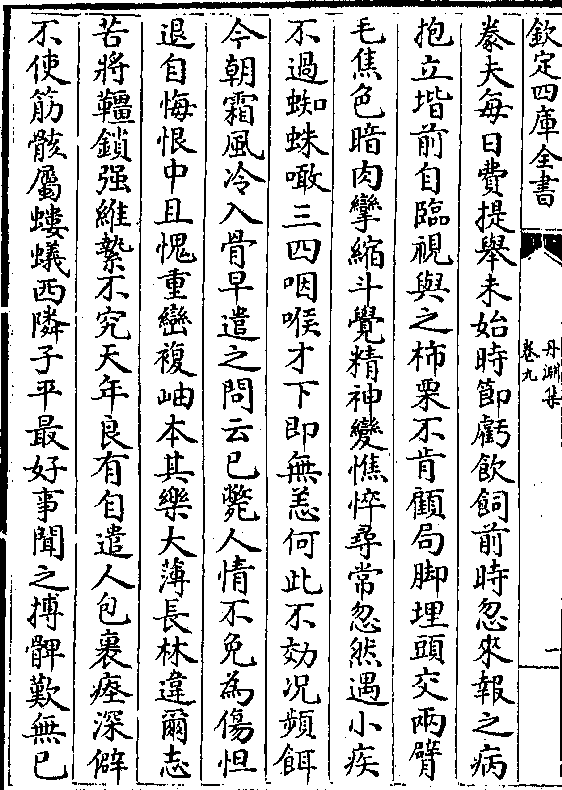 欽定四庫全書
丹淵集
卷九
一
豢夫每日費提舉未始時節虧飲飼前時忽來報之病
抱立堦前自臨視與之柿栗不肯顧局脚埋頭交兩臂
毛焦色暗肉攣縮斗覺精神變憔悴尋常忽然遇小疾
不過蜘蛛噉三四咽喉才下即無恙何此不効况頻餌
今朝霜風冷入骨早遣之問云已斃人情不免為傷怛
退自悔恨中且愧重巒複岫本其樂大薄長林違爾志
苦將韁鎖强維縶不究天年良有自遣人包裹瘞深僻
不使筋骸屬螻蟻西隣子平最好事聞之搏髀歎無已